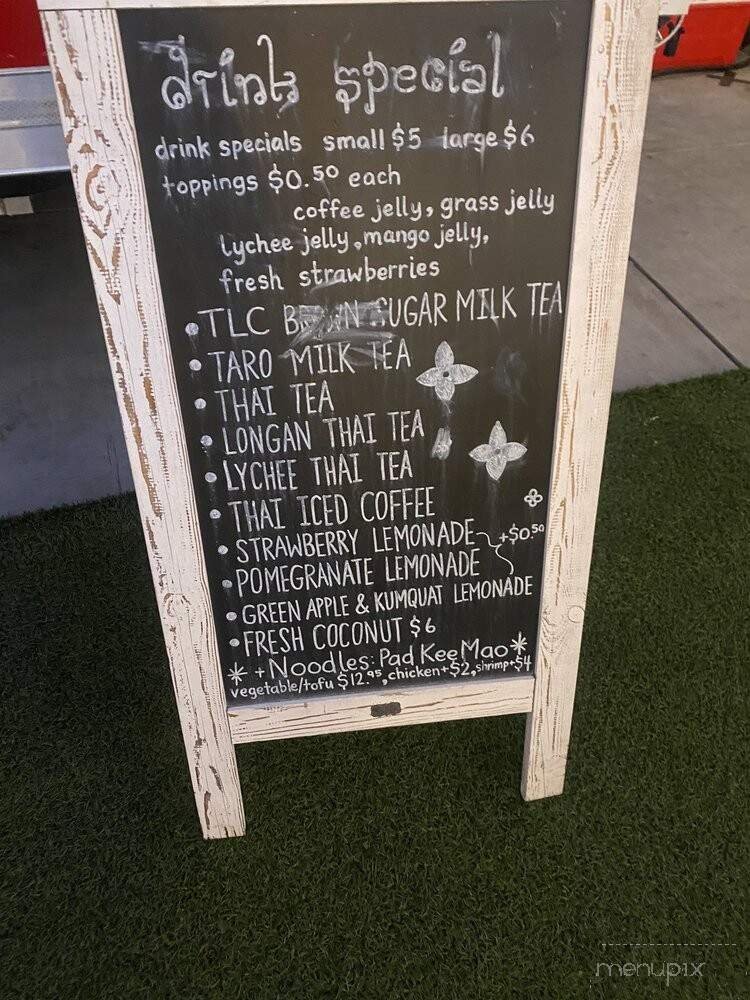 drink special
drink specials small $5 large $6
toppings $0.50 each
coffee jelly, grass jelly
lychee jelly, mango jelly,
fresh strawberries
• TLC BROWN SUGAR MILK TEA
• TARO MILK TEA
• THAI TEA
• LONGAN THAI TEA
• LYCHEE THAI TEA
• THAI ICED COFFEE
• STRAWBERRY LEMONADE +$0.50
• POMEGRANATE LEMONADE
• GREEN APPLE & KUMQUAT LEMONADE
• FRESH COCONUT $6
* + Noodles: Pad Kee Mao *
vegetable/tofu $12.95, chicken+$2, shrimp+$4
menupix